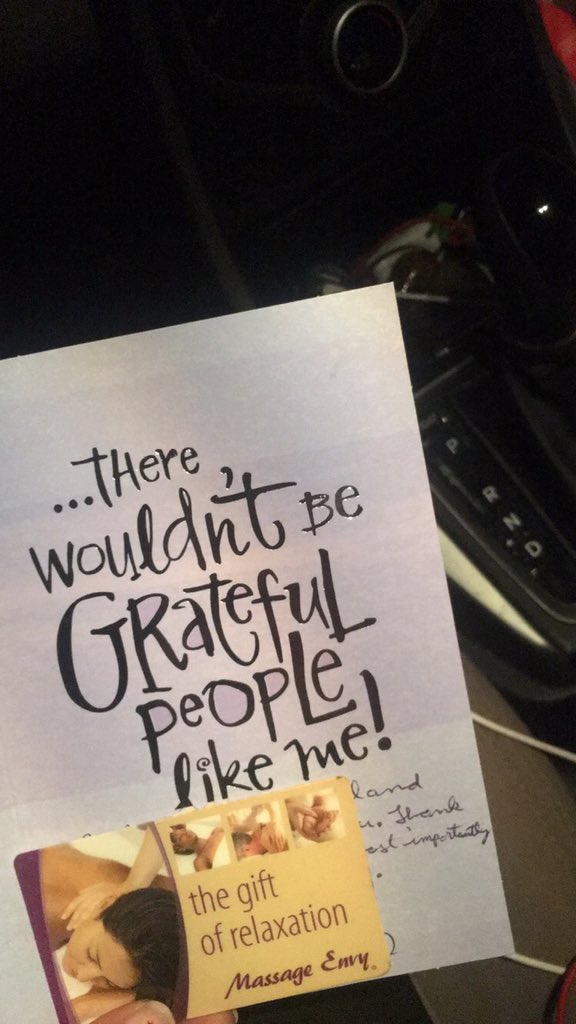 ...there
wouldn't be
Grateful
people
like me!
land
u. Thank
est importantly
the gift
of relaxation
Massage Envy
P
R
N
D